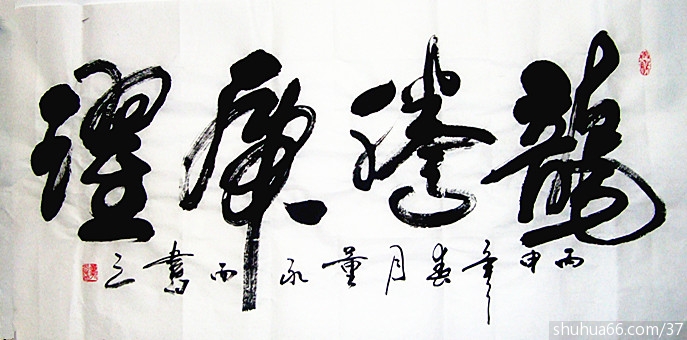 龍騰虎躍
丙申年春月董永西書
shuhua66.com/37